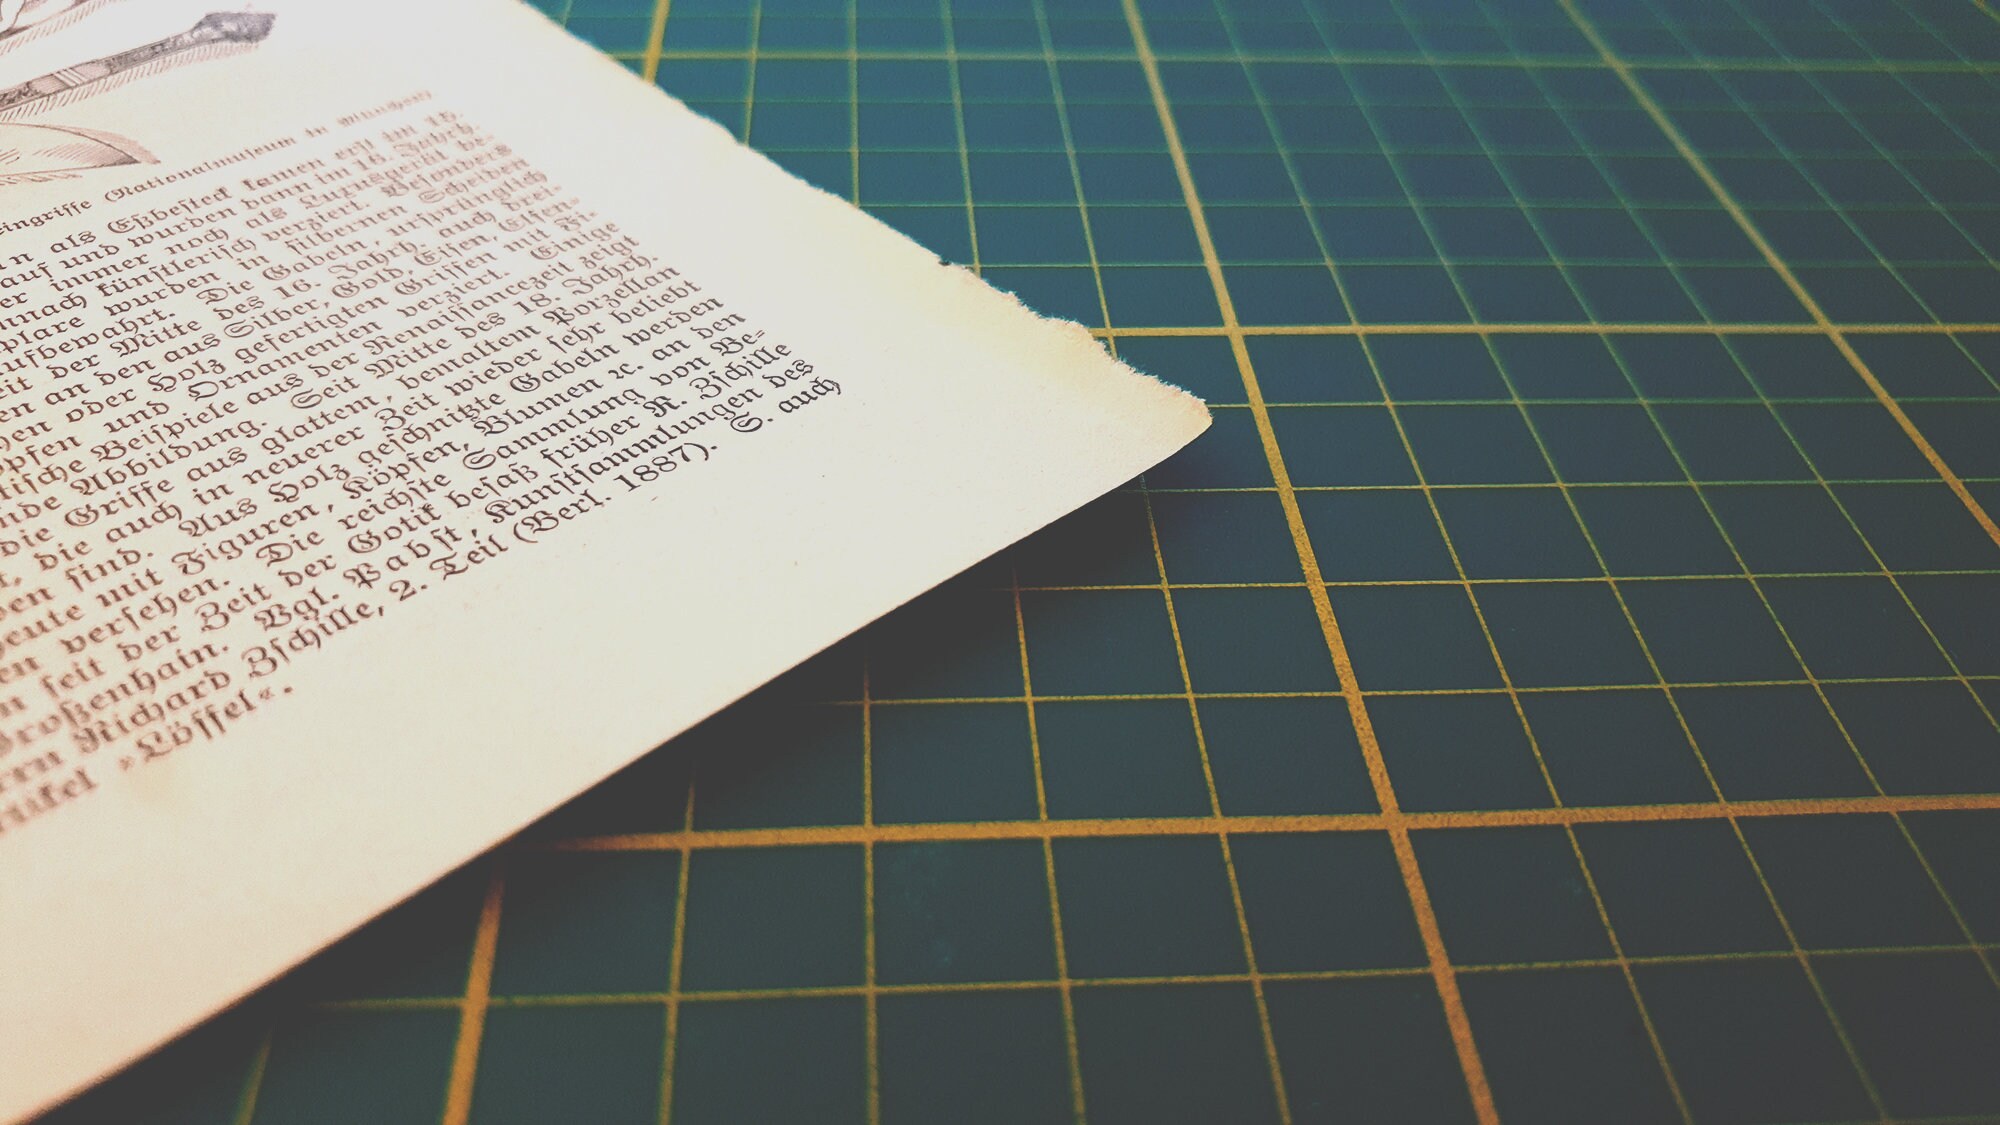 eingriffe (Nationalmuseum in München)
n als Eßbesteck kamen erst im 16.
auf und wurden dann im 16. Jahrh.
er immer noch als Luxusgerät be-
nnach künstlerisch verziert. Besonders
plare wurden in silbernen Scheiden
ufbewahrt. Die Gabeln, ursprünglich
eit der Mitte des 16. Jahrh. auch drei-
en an den aus Silber, Gold, Eisen, Elfen-
hen oder Holz gefertigten Griffen mit Fi-
öpfen und Ornamenten verziert. Einige
tische Beispiele aus der Renaissancezeit zeigt
nde Abbildung. Seit Mitte des 18. Jahrh.
die Griffe aus glattem, bemaltem Porzellan
t, die auch in neuerer Zeit wieder sehr beliebt
en sind. Aus Holz geschnitzte Gabeln werden
heute mit Figuren, Köpfen, Blumen ꝛc. an den
en versehen. Die reichste Sammlung von Be-
n seit der Zeit der Gotik besaß früher R. Zschille
Großenhain. Vgl. Pabst, Kunstsammlungen des
rrn Richard Zschille, 2. Teil (Berl. 1887). S. auch
rtikel »Löffel«.